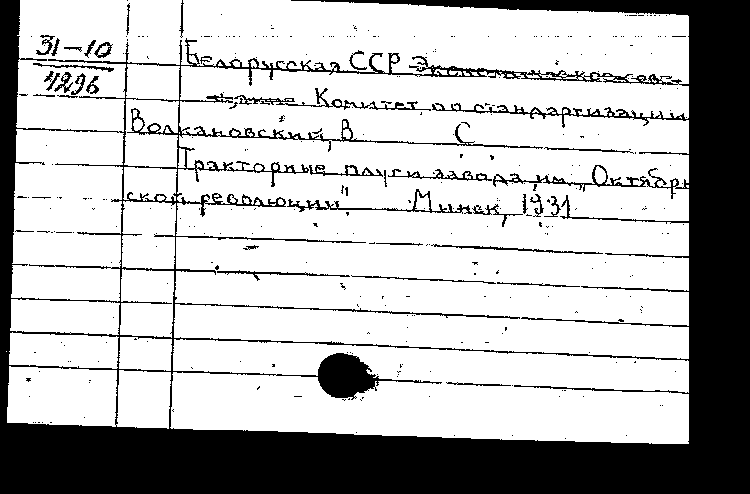 31-10
4296
Белорусская ССР Экономическое сове-
щание. Комитет по стандартизации
Волкановский, В С
Тракторные плуги завода им. „Октябрь
ской революции". Минск, 1931